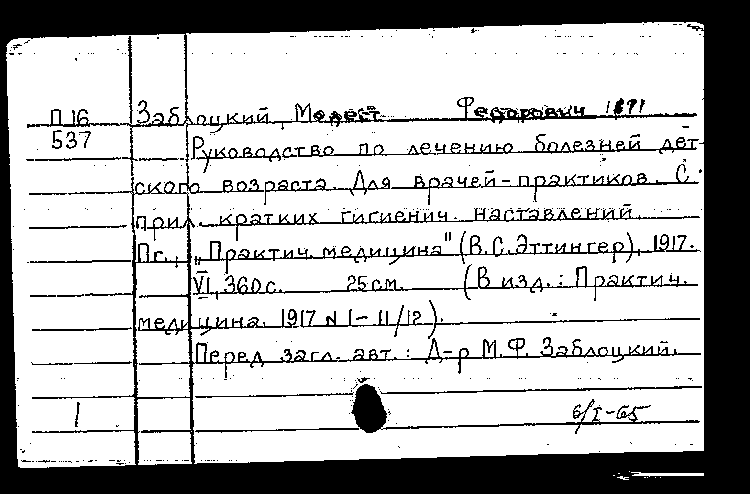 П 16 Заблоцкий, Модест Федорович 1871
537 Руководство по лечению болезней дет-
ского возраста. Для врачей-практиков. С
прил. кратких гигиенич. наставлений.
Пг., „Практич. медицина" (В.С.Эттингер), 1917.
VI, 360 с. 25 см. (В изд.: Практич.
медицина. 1917 N 1-11/12).
Перед загл. авт.: Д-р М.Ф. Заблоцкий.
1 6/I-65